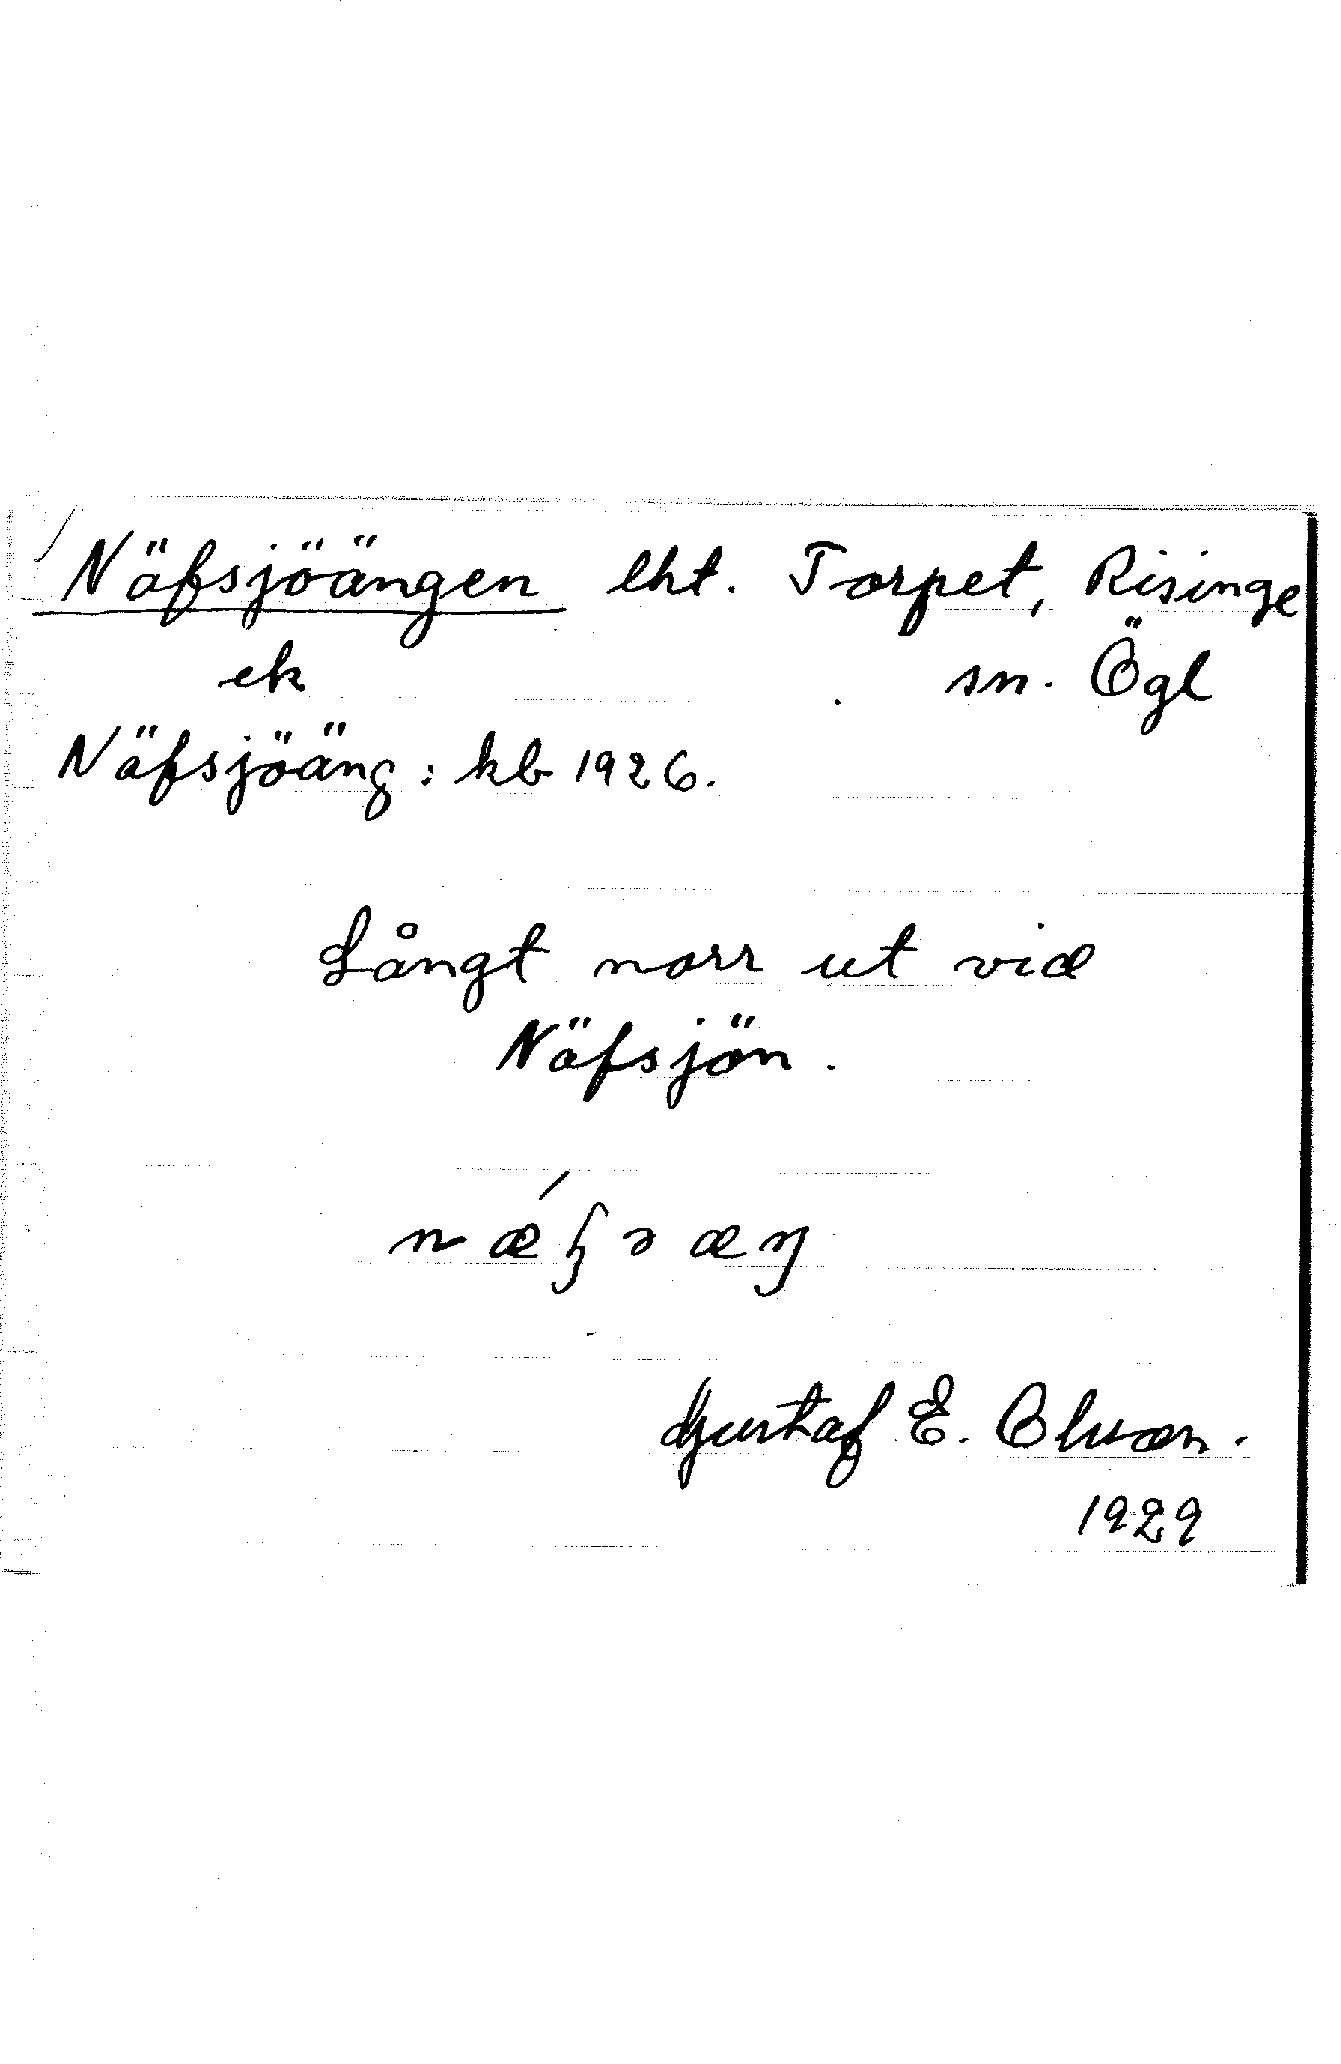 Näfsjöängen lht. Torpet, Risinge
ek sn. Ögl
Näfsjöäng: kb 1926.
Långt norr ut vid
Näfsjön.
Gustaf E. Olsson.
1929